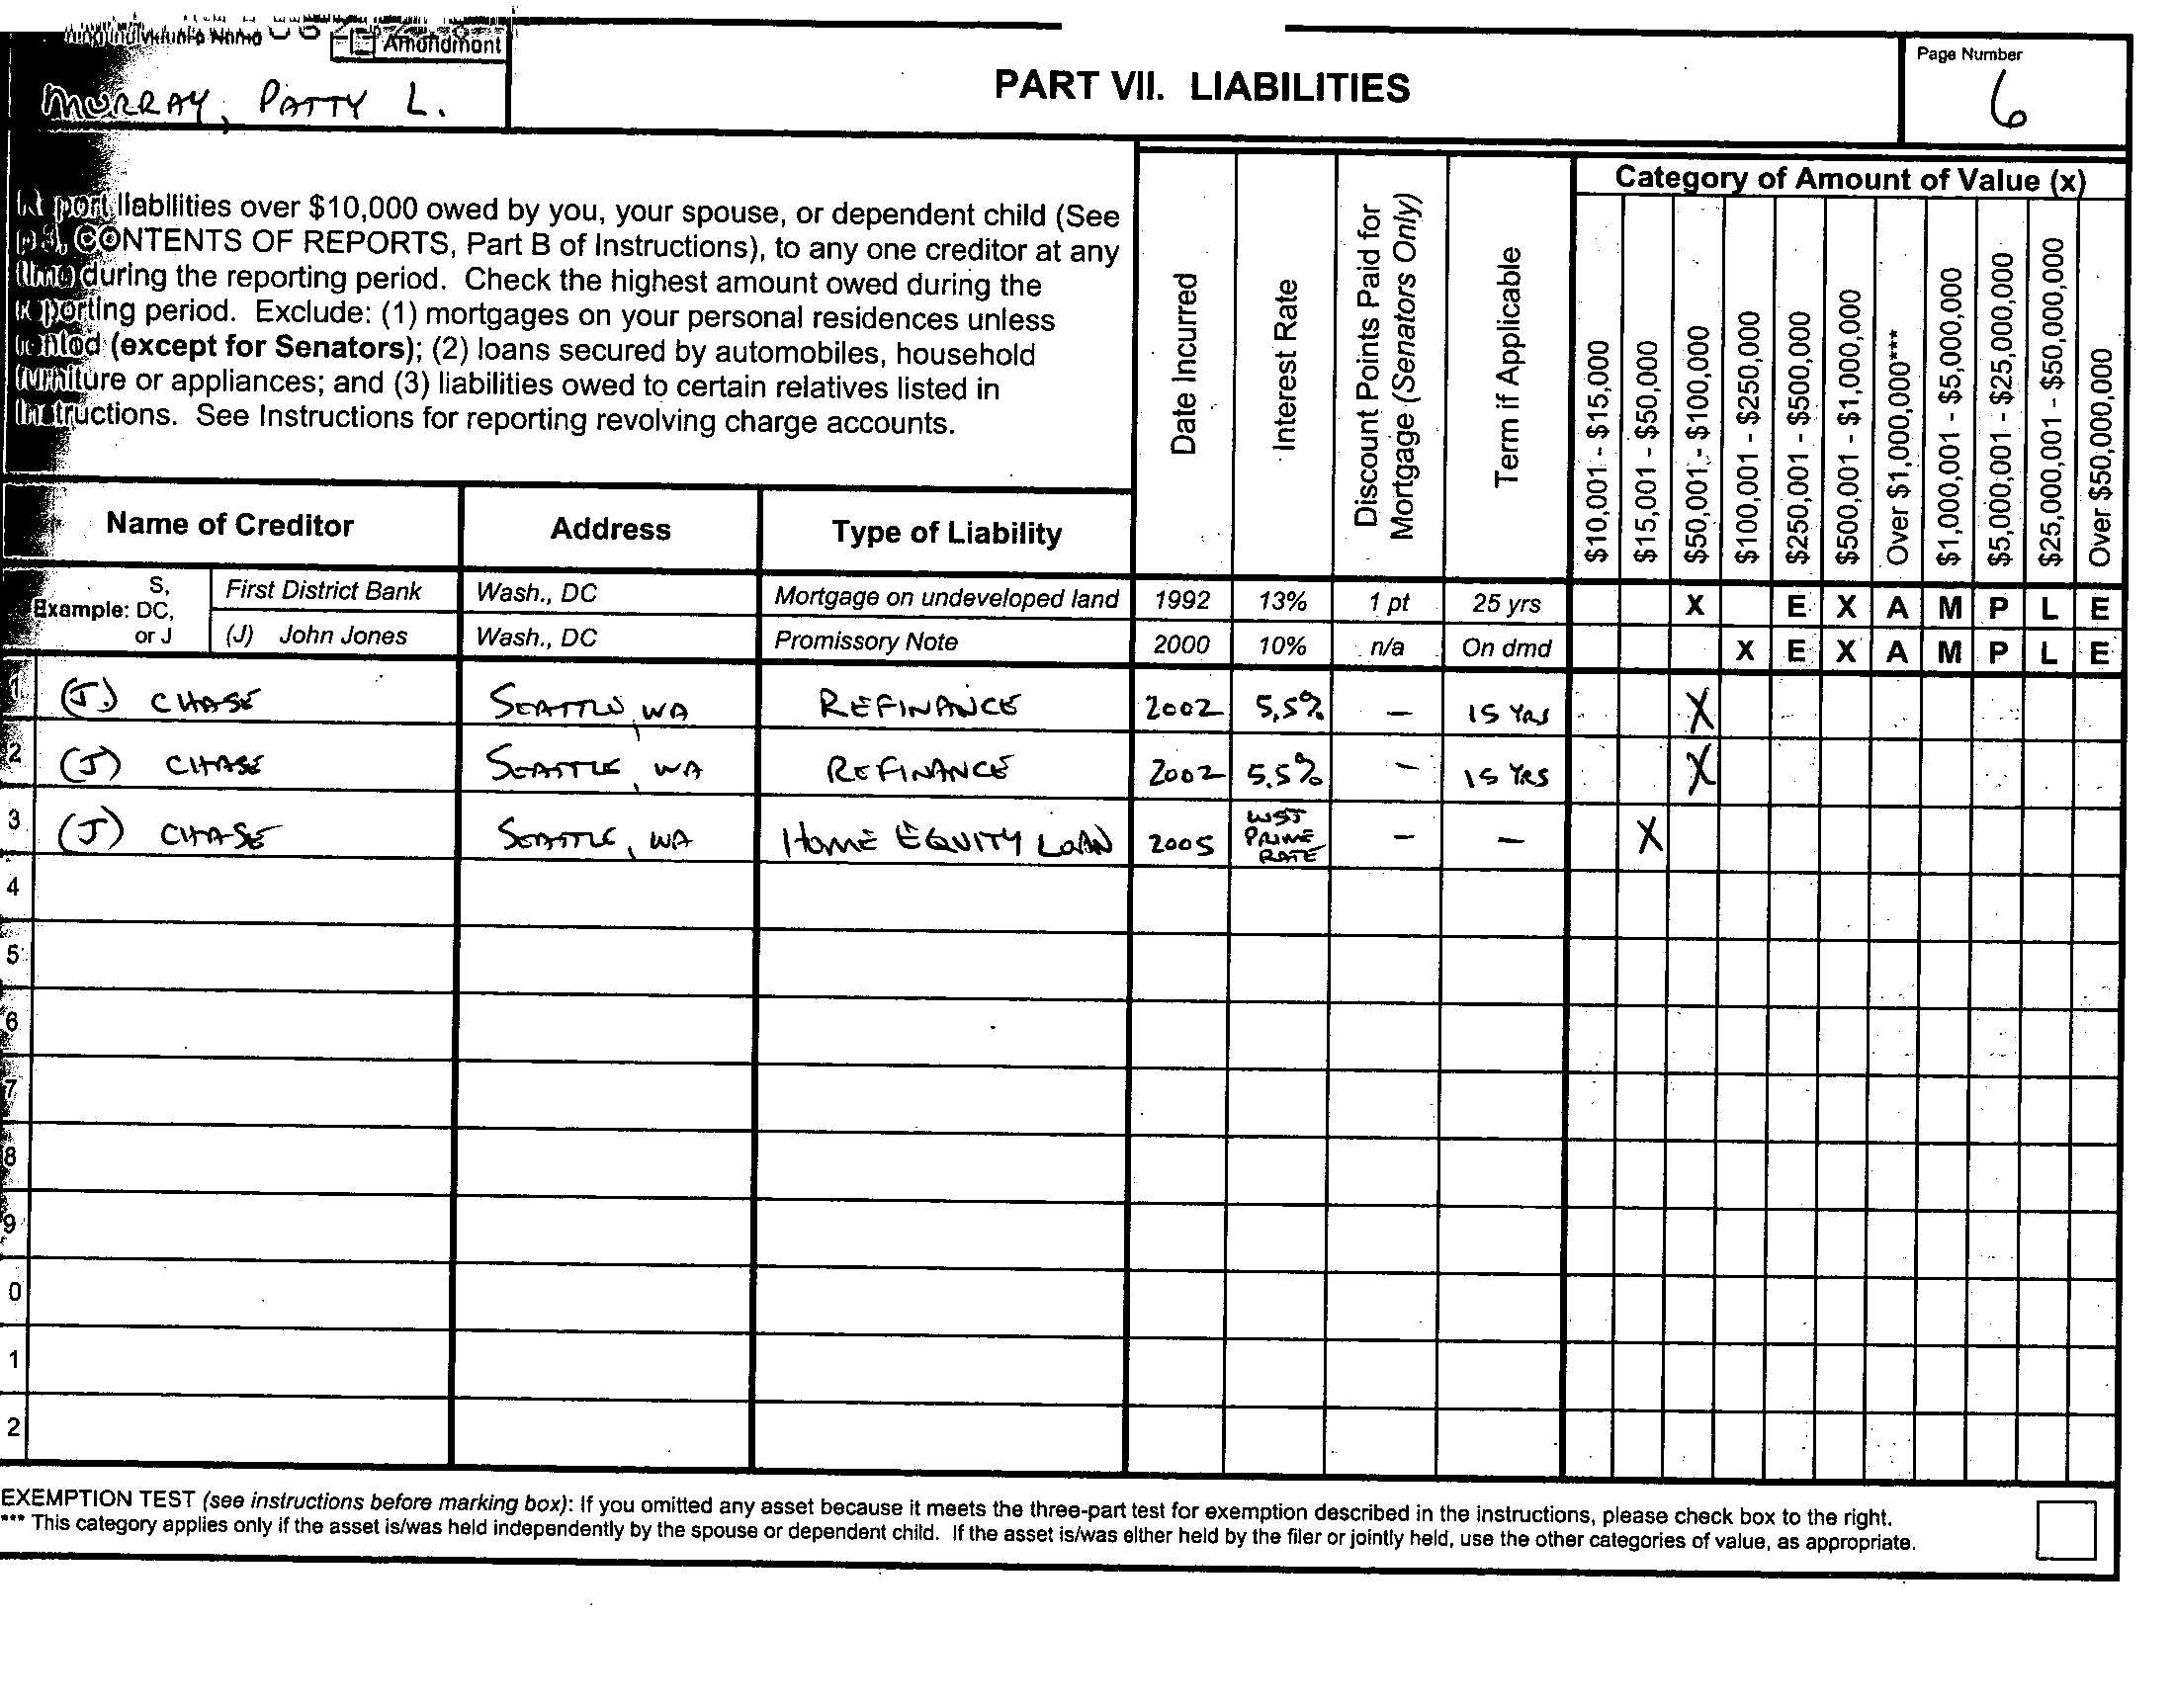 Amendment
MURRAY, PATTY L.
PART VII. LIABILITIES
Page Number
6
port liabilities over $10,000 owed by you, your spouse, or dependent child (See
CONTENTS OF REPORTS, Part B of Instructions), to any one creditor at any
time during the reporting period. Check the highest amount owed during the
reporting period. Exclude: (1) mortgages on your personal residences unless
rented (except for Senators); (2) loans secured by automobiles, household
furniture or appliances; and (3) liabilities owed to certain relatives listed in
Instructions. See Instructions for reporting revolving charge accounts.
Date Incurred
Interest Rate
Discount Points Paid for
Mortgage (Senators Only)
Term if Applicable
Category of Amount of Value (x)
$10,001 - $15,000
$15,001 - $50,000
$50,001 - $100,000
$100,001 - $250,000
$250,001 - $500,000
$500,001 - $1,000,000
Over $1,000,000***
$1,000,001 - $5,000,000
$5,000,001 - $25,000,000
$25,000,001 - $50,000,000
Over $50,000,000
Name of Creditor Address Type of Liability
Example: S, DC, or J
First District Bank Wash., DC Mortgage on undeveloped land 1992 13% 1 pt 25 yrs X E X A M P L E
(J) John Jones Wash., DC Promissory Note 2000 10% n/a On dmd X E X A M P L E
1 (J.) CHASE SEATTLE, WA REFINANCE 2002 5.5% – 15 YRS X
2 (J) CHASE SEATTLE, WA REFINANCE 2002 5.5% – 15 YRS X
3 (J) CHASE SEATTLE, WA HOME EQUITY LOAN 2005 WSJ PRIME RATE – – X
4
5
6
7
8
9
0
1
2
EXEMPTION TEST (see instructions before marking box): If you omitted any asset because it meets the three-part test for exemption described in the instructions, please check box to the right.
*** This category applies only if the asset is/was held independently by the spouse or dependent child. If the asset is/was either held by the filer or jointly held, use the other categories of value, as appropriate.